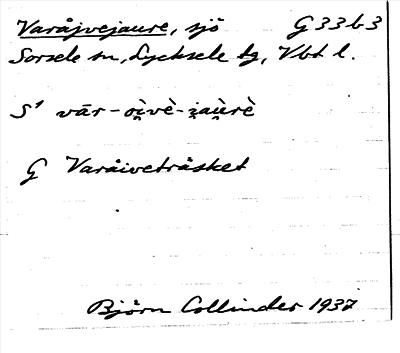 Varåjvejaure, sjö G33b3
Sorsele sn, Lycksele tg, Vbt l.
S¹ vār-oi̯vè-i̯au̯rè
G Varåiveträsket
Björn Collinder 1937